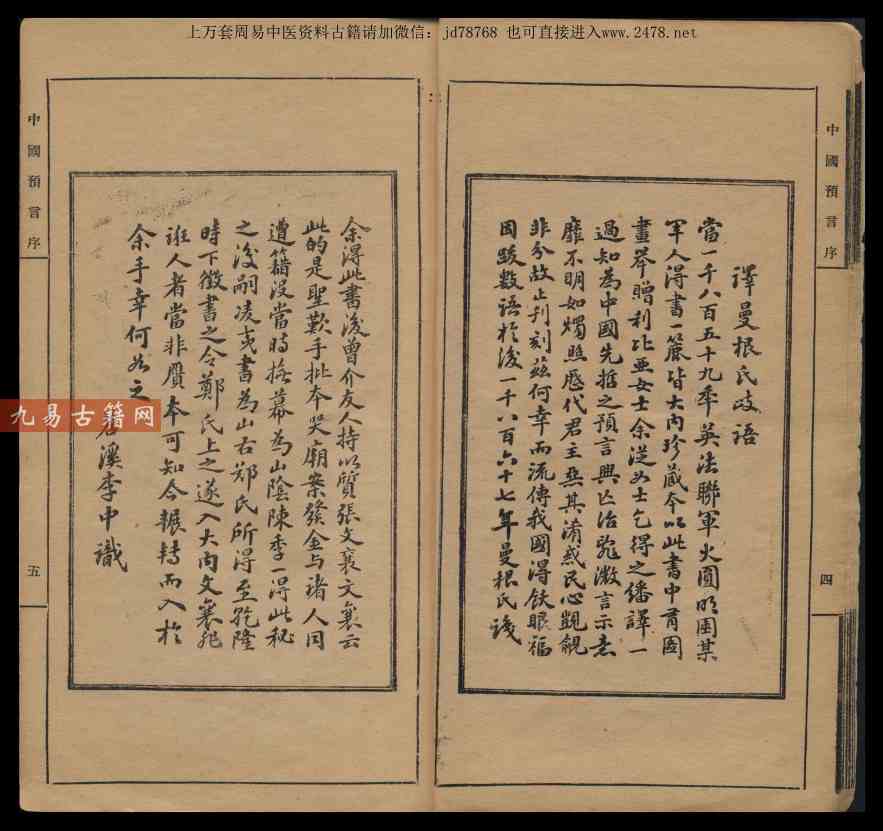 上万套周易中医资料古籍请加微信：jd78768 也可直接进入www.2478.net
中國預言序
四
譯曼根氏跋語
當一千八百五十九年英法聯軍火圓明園某
軍人得書一簏皆大內珍藏本以此書中有圖
畫舉贈利比亞女士余從女士乞得之繙譯一
過知為中國先哲之預言興亡治亂微言示意
靡不明如燭照歷代君主惡其淆惑民心覬覦
非分故止刋刻茲何幸而流傳我國得飫眼福
因跋數語於後一千八百六十七年曼根氏識
中國預言序
五
余得此書後曾介友人持以質張文襄文襄云
此的是聖歎手批本哭廟案發金与諸人同
遭籍沒當時撫幕為山陰陳季一得此秘
之後嗣凌夷書為山右鄭氏所得至乾隆
時下徵書之令鄭氏上之遂入大內文襄非
誑人者當非贋本可知今輾轉而入於
余手幸何如之
溪李中識
九易古籍网